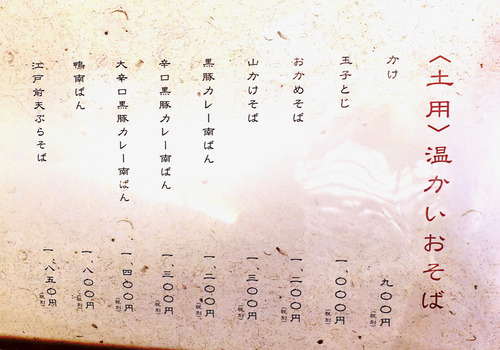 〈土用〉温かいおそば
かけ 九〇〇円(税別)
玉子とじ 一、〇〇〇円(税別)
おかめそば 一、二〇〇円(税別)
山かけそば 一、三〇〇円(税別)
黒豚カレー南ばん 一、二〇〇円(税別)
辛口黒豚カレー南ばん 一、三〇〇円(税別)
大辛口黒豚カレー南ばん 一、四〇〇円(税別)
鴨南ばん 一、八〇〇円(税別)
江戸前天ぷらそば 一、八五〇円(税別)